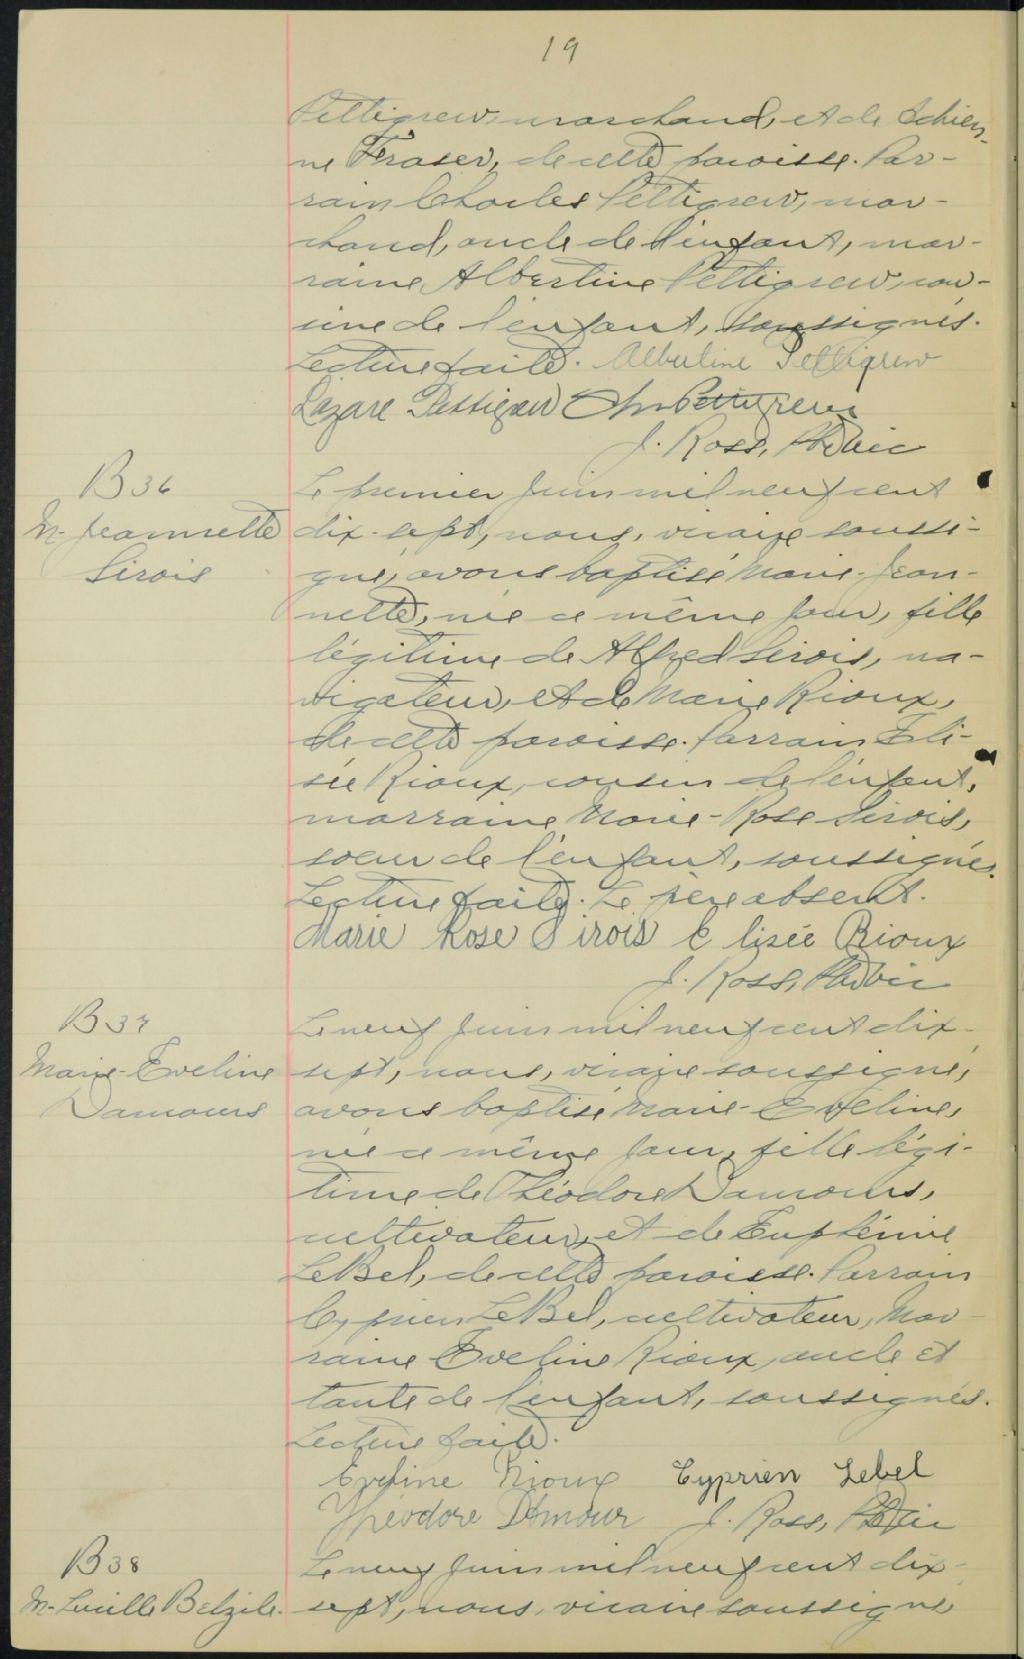 19
Pettigrew, marchand, et de Adrien-
ne Fraser, de cette paroisse. Par-
rain Charles Pettigrew, mar-
chand, oncle de l'enfant, mar-
raine Albertine Pettigrew, cou-
sine de l'enfant, soussignés.
Lecture faite. Albertine Pettigrew
Lazare Pettigrew Chs Pettigrew
J. Ross, Ptre Vic
B 36
M-Jeannette
Sirois
Le premier juin mil neuf cent
dix-sept, nous, vicaire soussi-
gné, avons baptisé Marie-Jean-
nette, née ce même jour, fille
légitime de Alfred Sirois, na-
vigateur, et de Marie Rioux,
de cette paroisse. Parrain Eli-
sée Rioux, cousin de l'enfant,
marraine Marie-Rose Sirois,
soeur de l'enfant, soussignés.
Lecture faite. Le père absent.
Marie Rose Sirois Elisée Rioux
J. Ross, Ptre Vic
B 37
Marie-Eveline
Damours
Le neuf juin mil neuf cent dix-
sept, nous, vicaire soussigné,
avons baptisé Marie-Eveline,
née ce même jour, fille légi-
time de Théodore Damours,
cultivateur, et de Euphémie
LeBel, de cette paroisse. Parrain
Cyprien LeBel, cultivateur, Mar-
raine Eveline Rioux, oncle et
tante de l'enfant, soussignés.
Lecture faite.
Eveline Rioux Cyprien Lebel
Théodore D'Amour J. Ross, Ptre Vic
B 38
M-Lucille Belzile.
Le neuf juin mil neuf cent dix-
sept, nous, vicaire soussigné